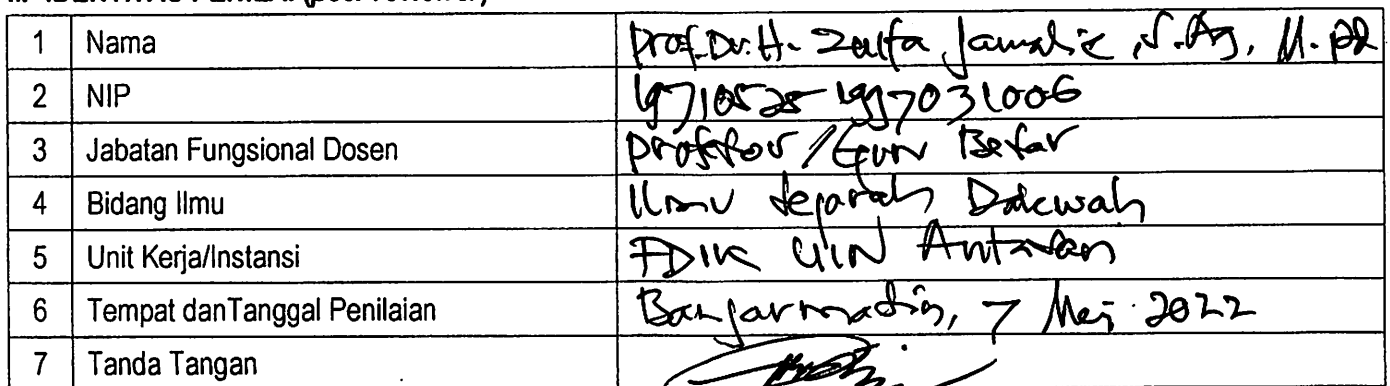 1 Nama Prof. Dr. H. Zulfa Jamalie, S.Ag, M.Pd
2 NIP 19710525 1997031006
3 Jabatan Fungsional Dosen Profesor / Guru Besar
4 Bidang Ilmu Ilmu Sejarah Dakwah
5 Unit Kerja/Instansi FDIK UIN Antasari
6 Tempat danTanggal Penilaian Banjarmasin, 7 Mei 2022
7 Tanda Tangan